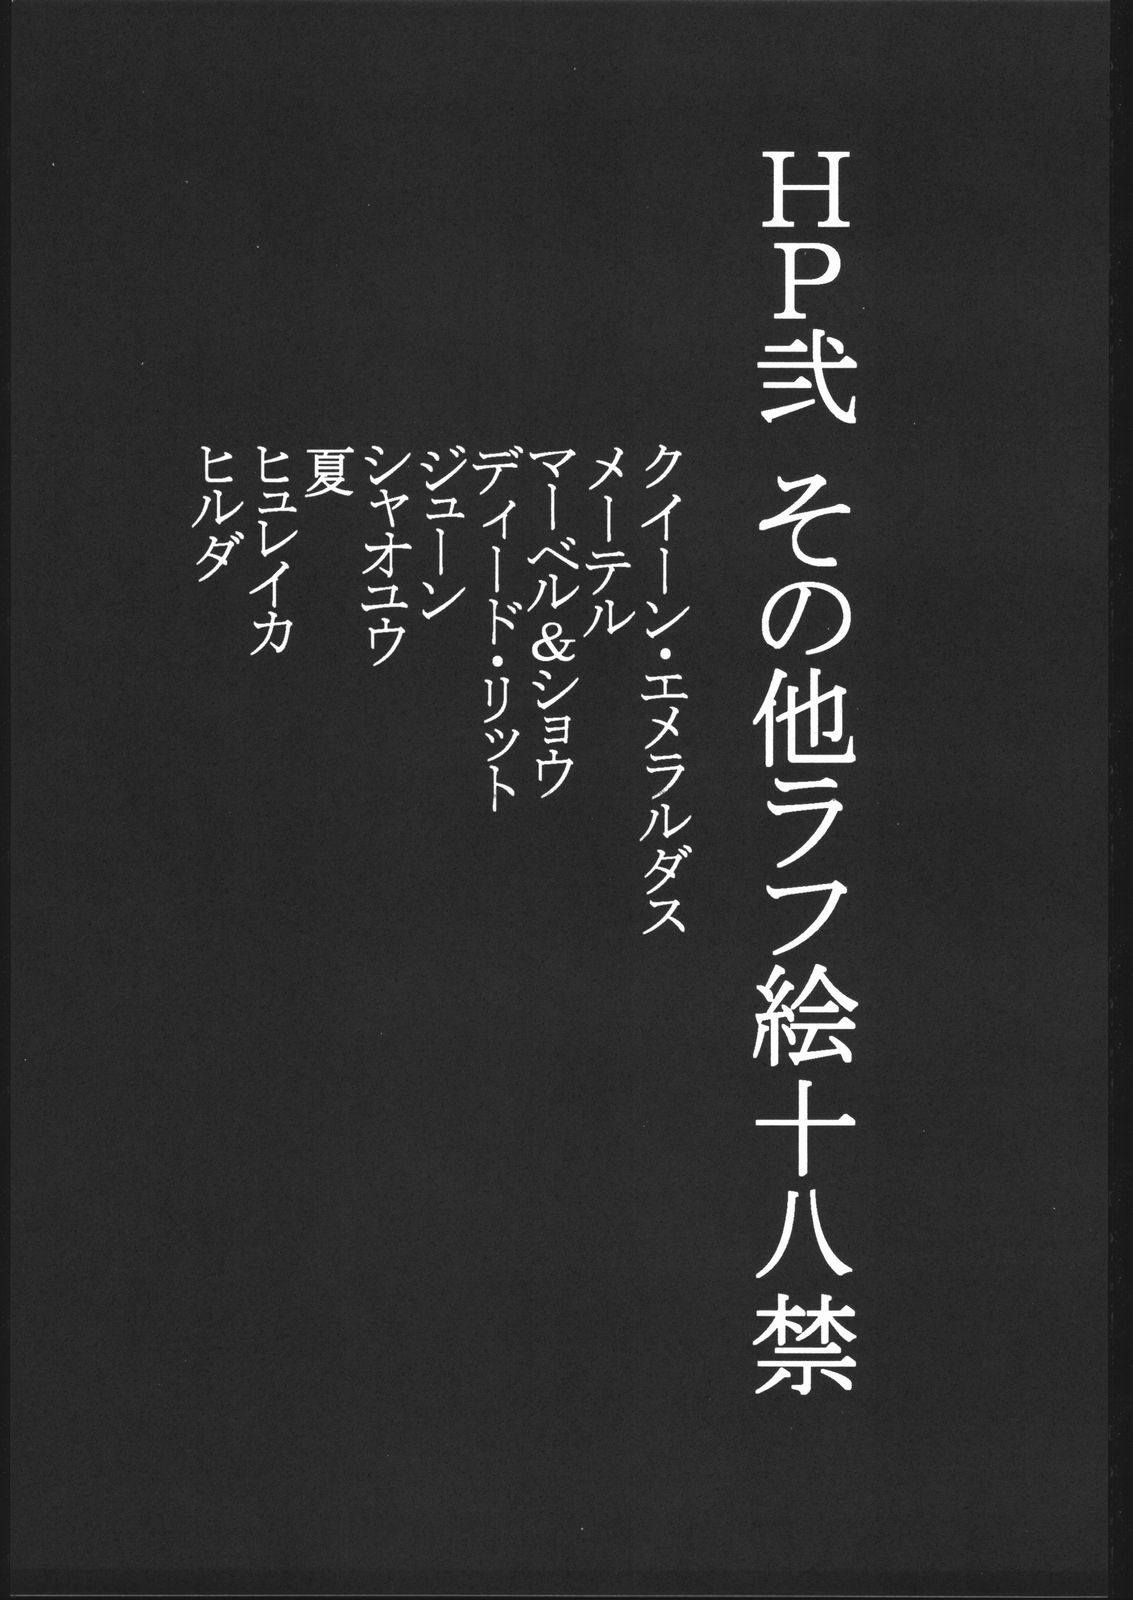 HP弐 その他ラフ絵十八禁
クイーン・エメラルダス
メーテル
マーベル&ショウ
ディード・リット
ジューン
シャオユウ
夏
ヒュレイカ
ヒルダ